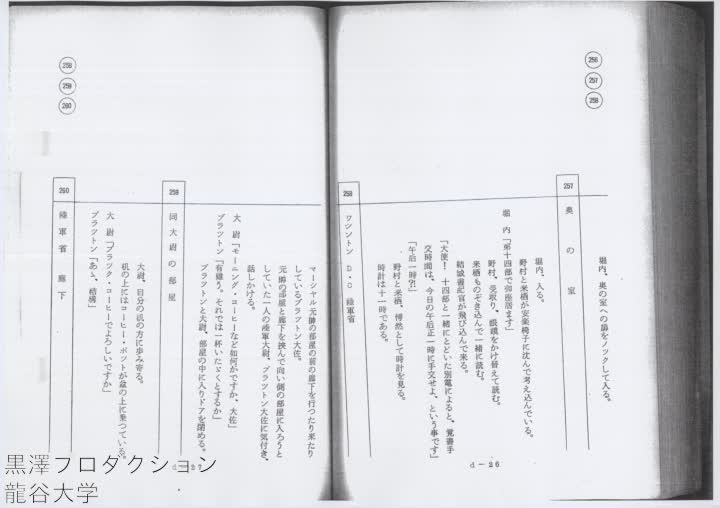 256
257
258
堀内、奥の室への扉をノックして入る。
257
奥の室
堀内、入る。
野村と来栖が安楽椅子に沈んで考え込んでいる。
堀内「第十四部で御座居ます」
野村、受取り、眼鏡をかけ替えて読む。
来栖ものぞき込んで一緒に読む。
結城書記官が飛び込んで来る。
「大使！　十四部と一緒にとどいた別電によると、覚書手
交時間は、今日の午后正一時に手交せよ、という事です」
「午后一時?!」
野村と来栖、愕然として時計を見る。
時計は十一時である。
258
ワシントン　D・C　陸軍省
d－26
258
259
260
マーシャル元帥の部屋の前の廊下を行つたり来たり
しているブラツトン大佐。
元帥の部屋と廊下を挟んで向い側の部屋に入ろうと
していた一人の陸軍大尉、ブラツトン大佐に気付き、
話しかける。
大尉「モーニング・コーヒーなど如何がですか、大佐」
ブラツトン「有難う。それでは一杯いたゞくとするか」
ブラツトンと大尉、部屋の中に入りドアを閉める。
259
同大尉の部屋
大尉、自分の机の方に歩み寄る。
机の上にはコーヒー・ポツトが盆の上に乗つている。
大尉「ブラツク・コーヒーでよろしいですか」
ブラツトン「あゝ、結構」
260
陸軍省　廊下
d－27
黒澤プロダクション
龍谷大学